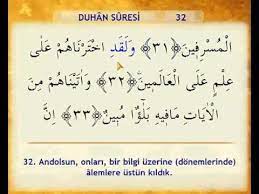 DUHÂN SÛRESİ 32
الْمُسْرِفِينَ ﴿٣١﴾ وَلَقَدِ اخْتَرْنَاهُمْ عَلَى
عِلْمٍ عَلَى الْعَالَمِينَ ﴿٣٢﴾ وَاٰتَيْنَاهُمْ مِنَ
الْاٰيَاتِ مَافِيهِ بَلٰٓؤٌا مُبِينٌ ﴿٣٣﴾ اِنَّ
32. Andolsun, onları, bir bilgi üzerine (dönemlerinde)
âlemlere üstün kıldık.